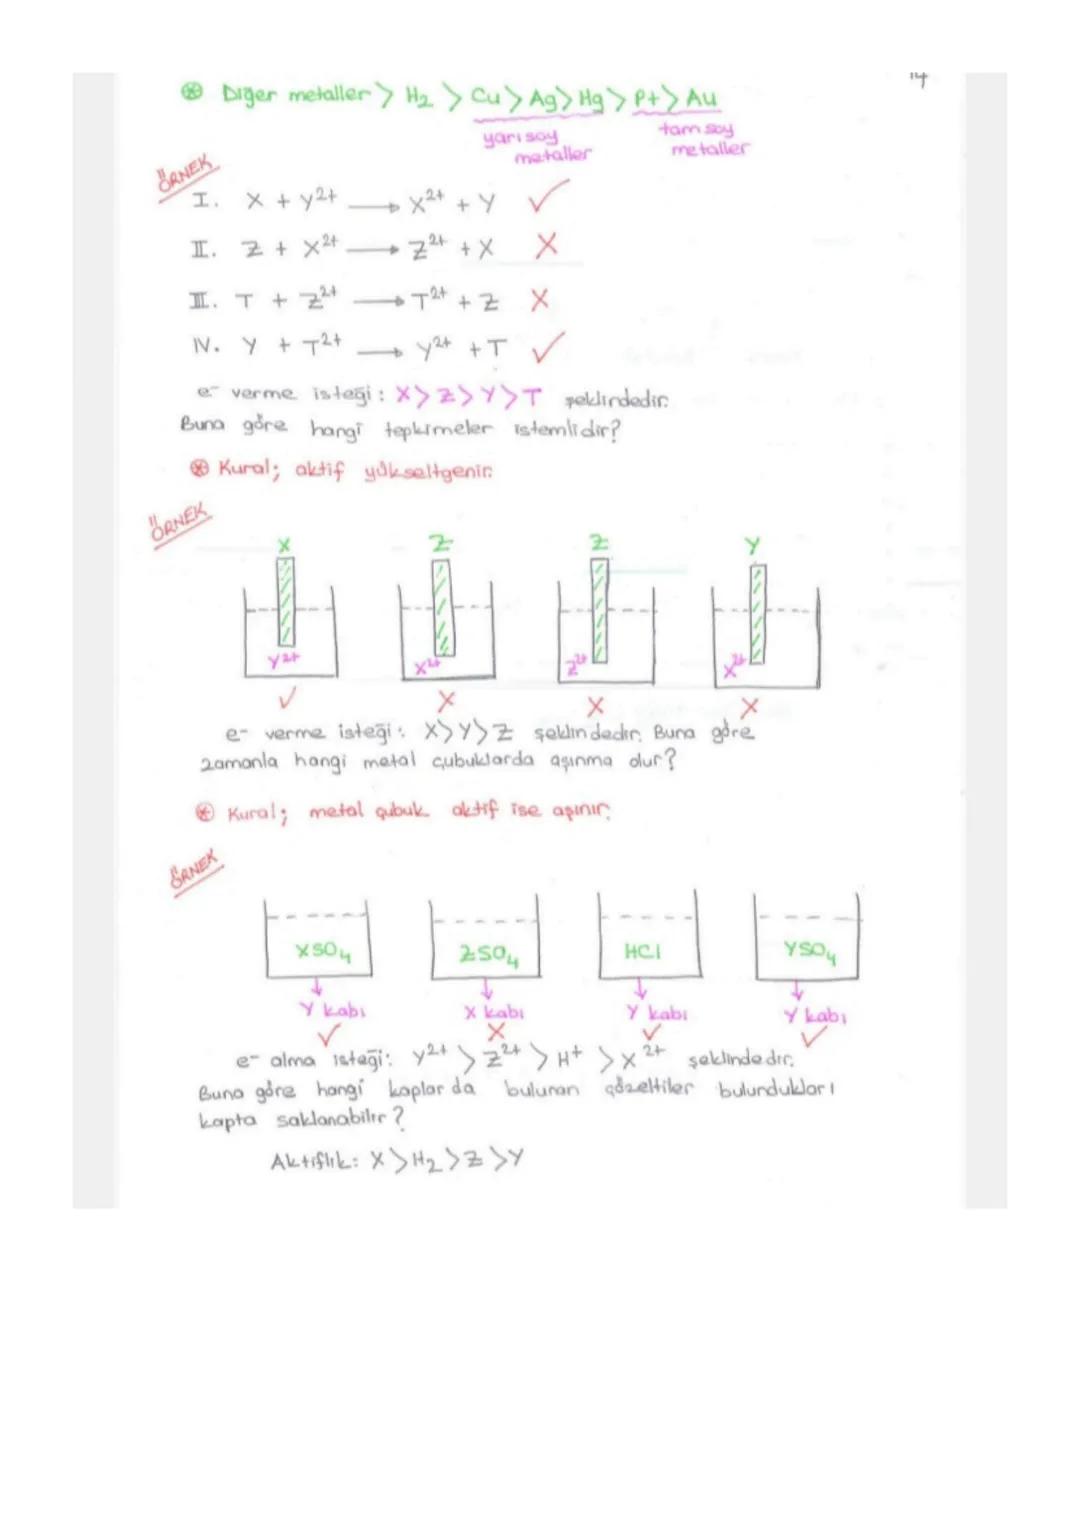 14
⊛ Diğer metaller > H₂ > Cu > Ag > Hg > Pt > Au
yarı soy metaller
tam soy metaller
ÖRNEK
I. X + Y²⁺ → X²⁺ + Y ✓
II. Z + X²⁺ → Z²⁺ + X X
III. T + Z²⁺ → T²⁺ + Z X
IV. Y + T²⁺ → Y²⁺ + T ✓
e⁻ verme isteği : X > Z > Y > T şeklindedir.
Buna göre hangi tepkimeler istemlidir?
⊛ Kural; aktif yükseltgenir.
ÖRNEK
X Z Z Y
Y²⁺ X²⁺ Z²⁺ X²⁺
✓ X X X
e⁻ verme isteği : X > Y > Z şeklindedir. Buna göre
zamanla hangi metal çubuklarda aşınma olur?
⊛ Kural; metal çubuk aktif ise aşınır.
ÖRNEK
XSO₄ ZSO₄ HCl YSO₄
Y kabı X kabı Y kabı Y kabı
✓ X ✓ ✓
e⁻ alma isteği: Y²⁺ > Z²⁺ > H⁺ > X²⁺ şeklindedir.
Buna göre hangi kaplarda bulunan çözeltiler bulundukları
kapta saklanabilir?
Aktiflik: X > H₂ > Z > Y